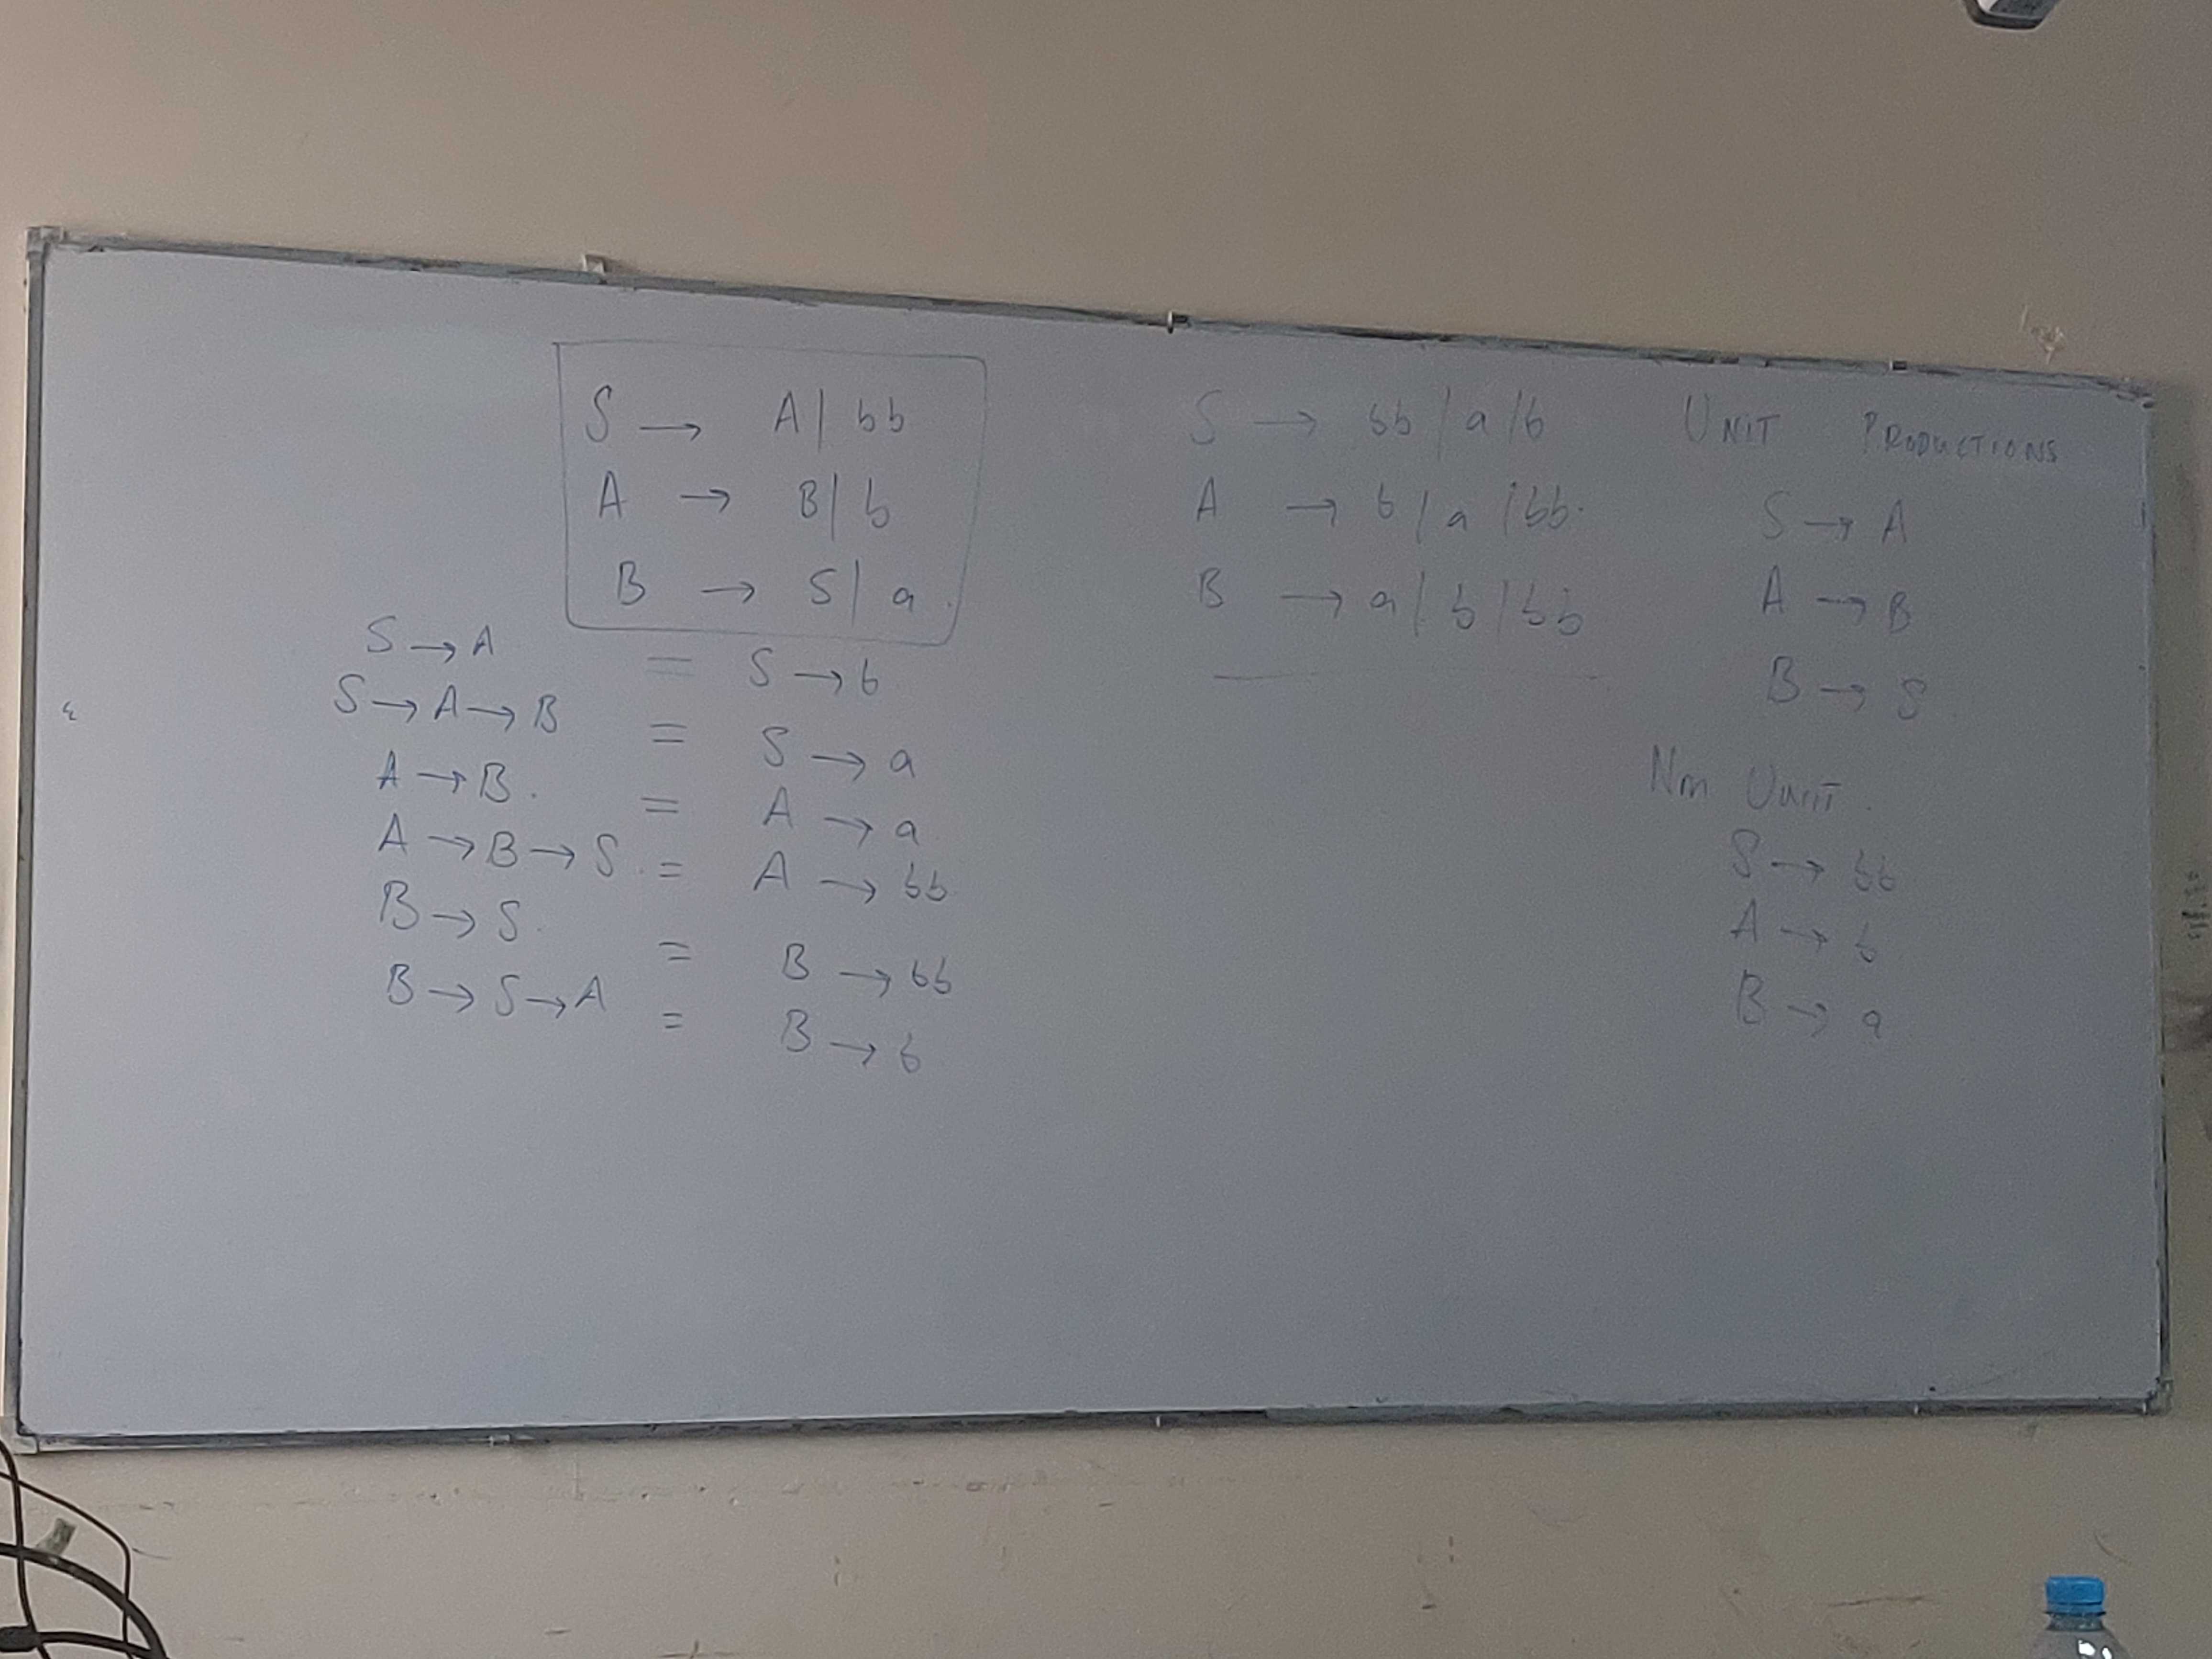 S → A | bb
A → B | b
B → S | a.
S → A = S → b
S → A → B = S → a
A → B. = A → a
A → B → S. = A → bb
B → S. = B → bb
B → S → A = B → b
S → bb / a / b
A → b / a / bb.
B → a | b / bb
UNIT PRODUCTIONS
S → A
A → B
B → S
Non Unit.
S → bb
A → b
B → a